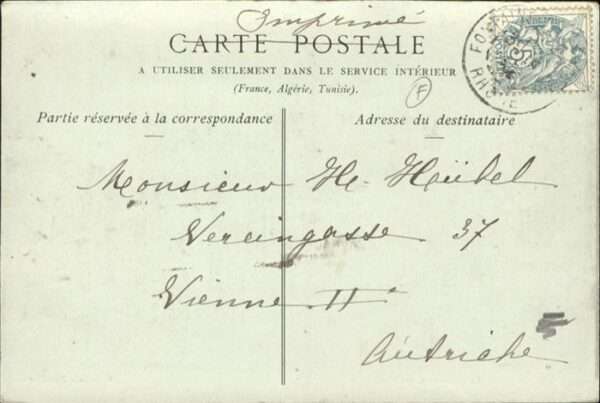 Imprimé
CARTE POSTALE
A UTILISER SEULEMENT DANS LE SERVICE INTÉRIEUR
(France, Algérie, Tunisie).
F
Partie réservée à la correspondance
Adresse du destinataire
Monsieur H. Hübel
Vereingasse 37
Vienne II
Autriche